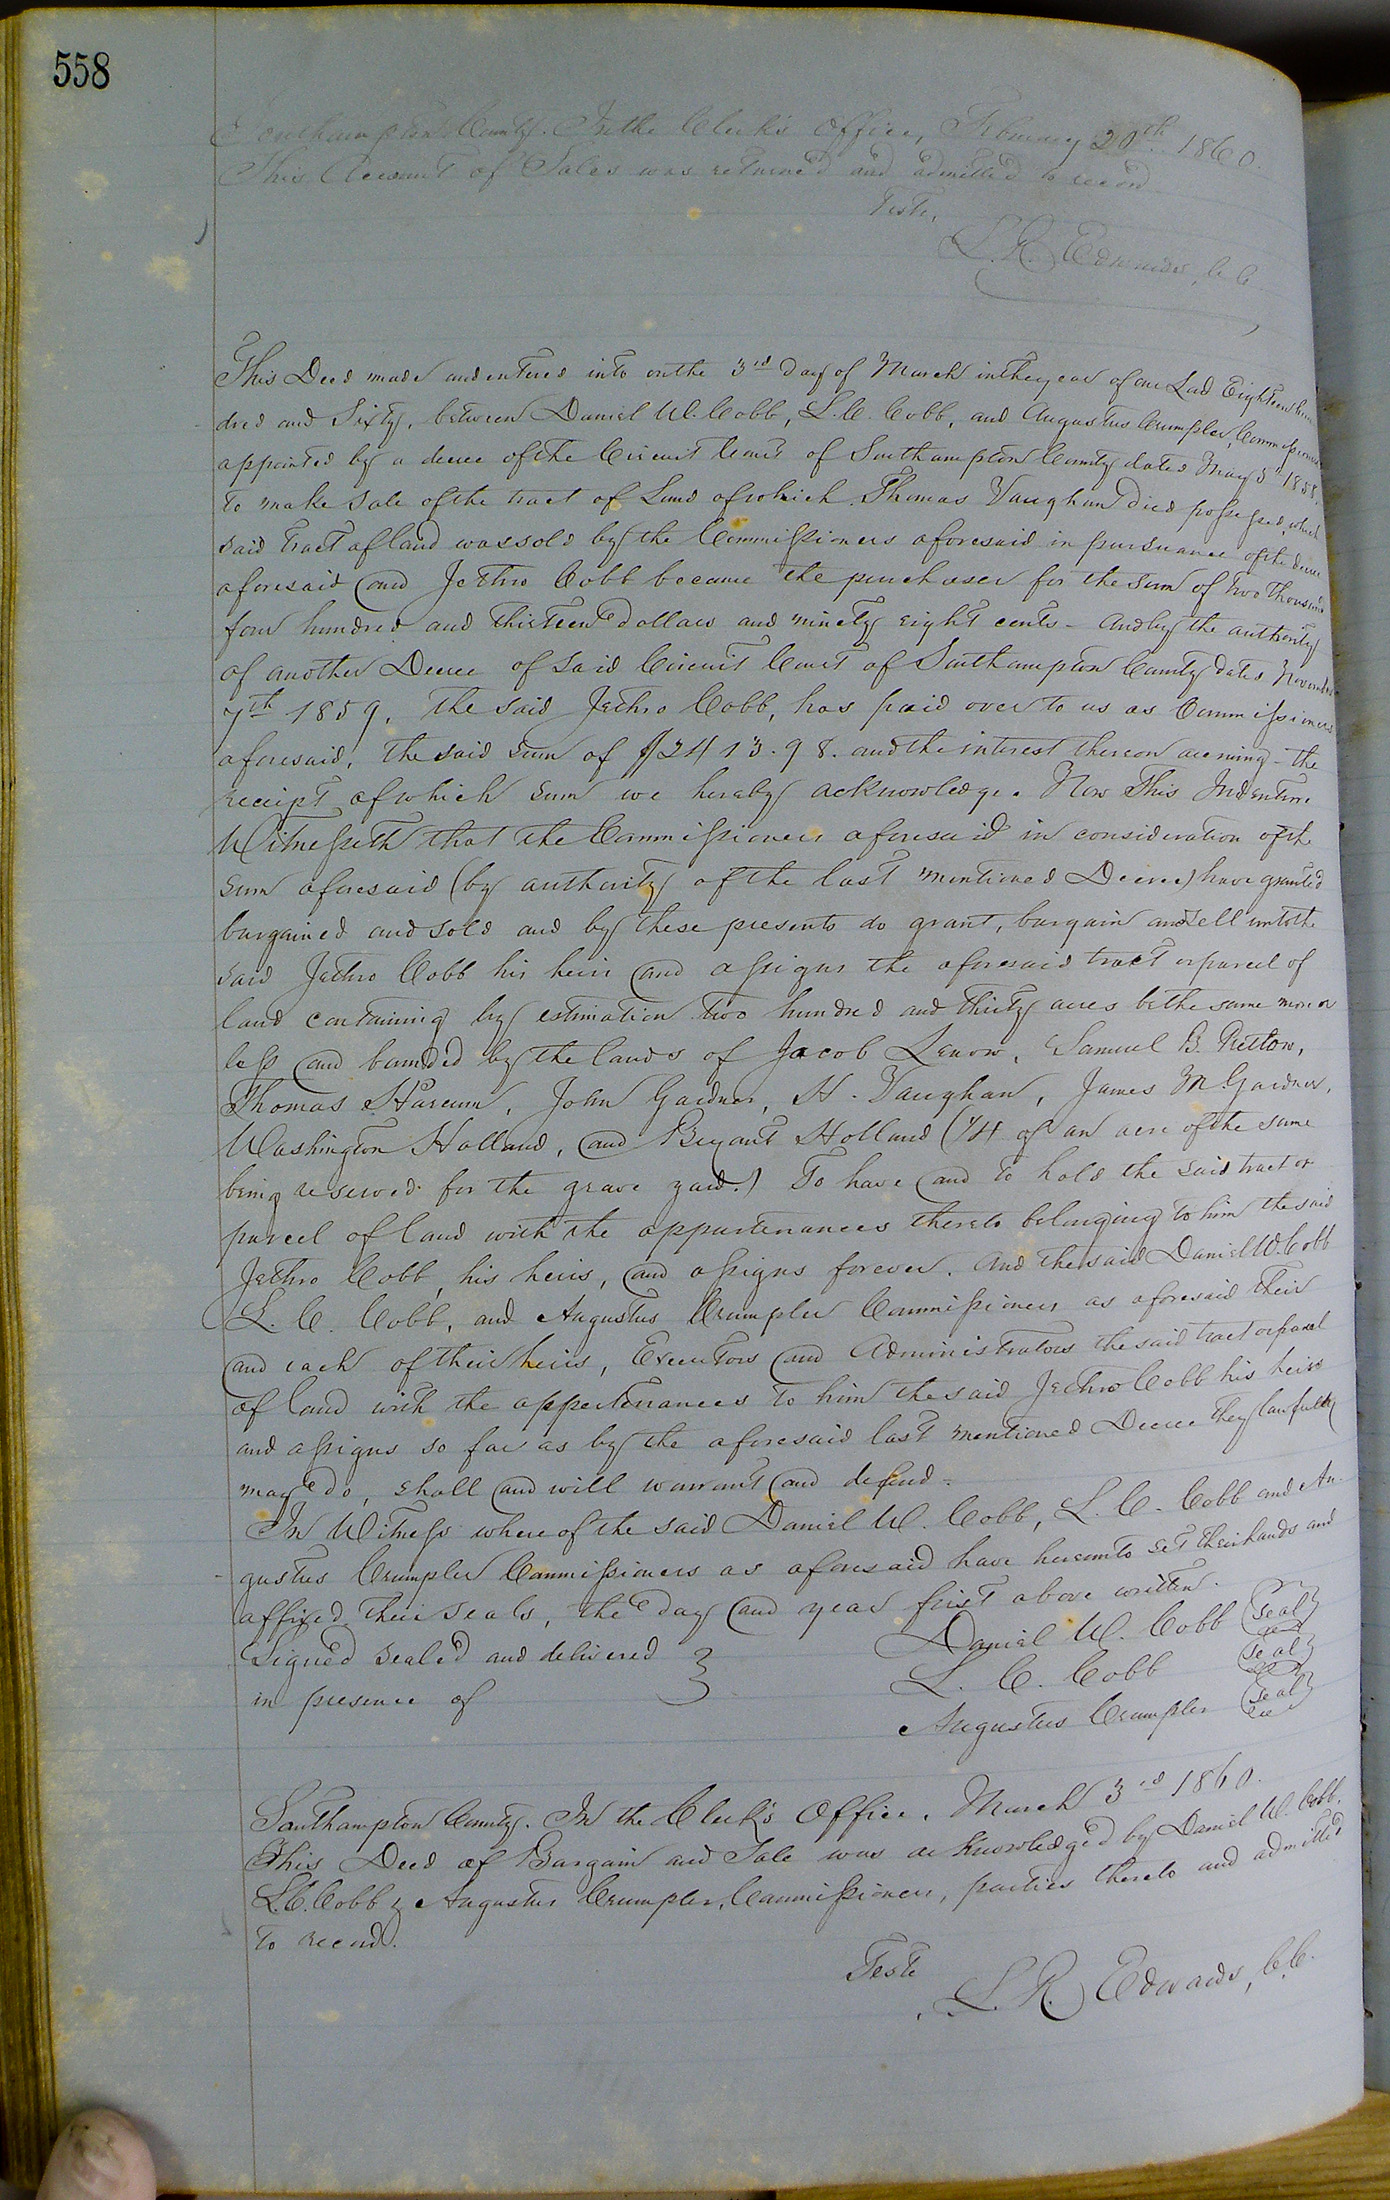 558
Southampton County. In the Clerk's Office, February 20th 1860.
This Account of Sales was returned and admitted to record
Teste,
L. R. Edwards, C. C.
This Deed made and entered into on the 3rd day of March in the year of our Lord Eighteen hun
dred and Sixty, between Daniel W. Cobb, L. C. Cobb, and Augustus Crumpler, Commissioners
appointed by a decree of the Circuit Court of Southampton County dated May 5th 1858,
to make sale of the tract of Land of which Thomas Vaughan died possessed, which
said tract of land was sold by the Commissioners aforesaid in pursuance of the decree
aforesaid and Jethro Cobb became the purchaser for the sum of two thousand
four hundred and thirteen dollars and ninety eight cents - And by the authority
of another Decree of said Circuit Court of Southampton County dated November
7th 1859, the said Jethro Cobb, has paid over to us as Commissioners
aforesaid, the said sum of $2413.98. and the interest thereon accruing - the
receipt of which sum we hereby acknowledge. Now This Indenture
Witnesseth that the Commissioners aforesaid in consideration of the
sum aforesaid (by authority of the last mentioned Decree) have granted
bargained and sold and by these presents do grant, bargain and sell unto the
said Jethro Cobb his heirs and assigns the aforesaid tract or parcel of
land containing by estimation two hundred and thirty acres be the same more or
less and bounded by the lands of Jacob Lenow, Samuel B.
Thomas Harcum, John Gardner, H. Vaughan, James M. Gardner,
Washington Holland, and Bryant Holland (1/4 of an acre of the same
being reserved for the grave yard.) To have and to hold the said tract or
parcel of land with the appurtenances thereto belonging to him the said
Jethro Cobb, his heirs, and assigns forever. And the said Daniel W. Cobb
L. C. Cobb, and Augustus Crumpler Commissioners as aforesaid their
and each of their heirs, Executors and Administrators the said tract or parcel
of land with the appertenances to him the said Jethro Cobb his heirs
and assigns so far as by the aforesaid last mentioned Decree they lawfully
may do, shall and will warrant and defend -
In Witness whereof the said Daniel W. Cobb, L. C. Cobb and Au-
gustus Crumpler Commissioners as aforesaid have hereunto set their hands and
affixed their seals, the day and year first above written.
Signed sealed and delivered } Daniel W. Cobb {seal}
in presence of L. C. Cobb {seal}
Augustus Crumpler {seal}
Southampton County. In the Clerk's Office. March 3rd 1860.
This Deed of Bargain and Sale was acknowledged by Daniel W. Cobb,
L. C. Cobb & Augustus Crumpler, Commissioners, parties thereto and admitted
to record.
Teste
L. R. Edwards, C. C.